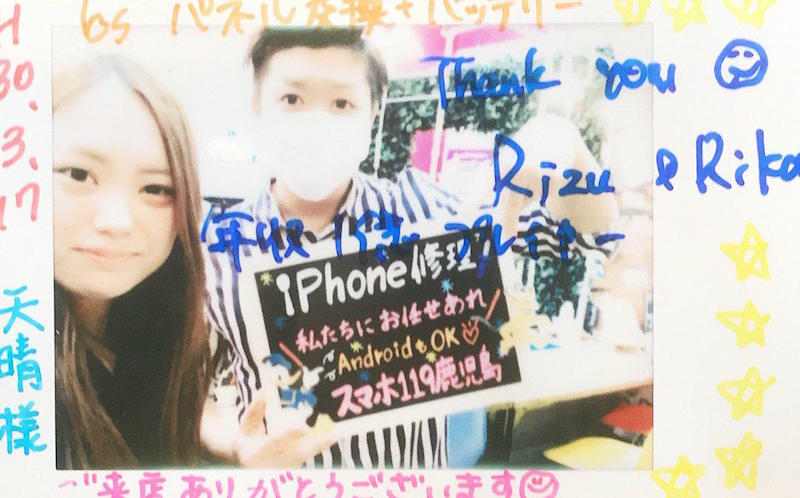 6s パネル交換+バッテリー
H
30.
3.
17
天晴様
Thank you
Rizu & Rika
年収1億プレイヤー
iPhone修理
\私たちにお任せあれ/
AndroidもOK♡
スマホ119鹿児島
ご来店ありがとうございます